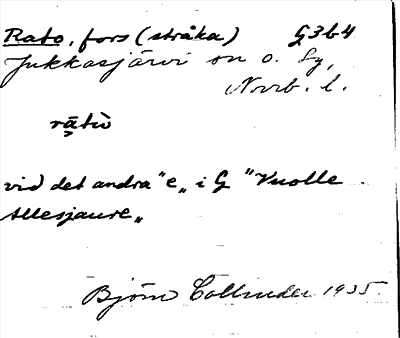 Rato, fors (stråka) G3b4
Jukkasjärvi sn o. Sg,
Norrb. l.
rạ̄tù
vid det andra "e„ i G "Vuolle
Allesjaure„
Björn Collinder 1935.